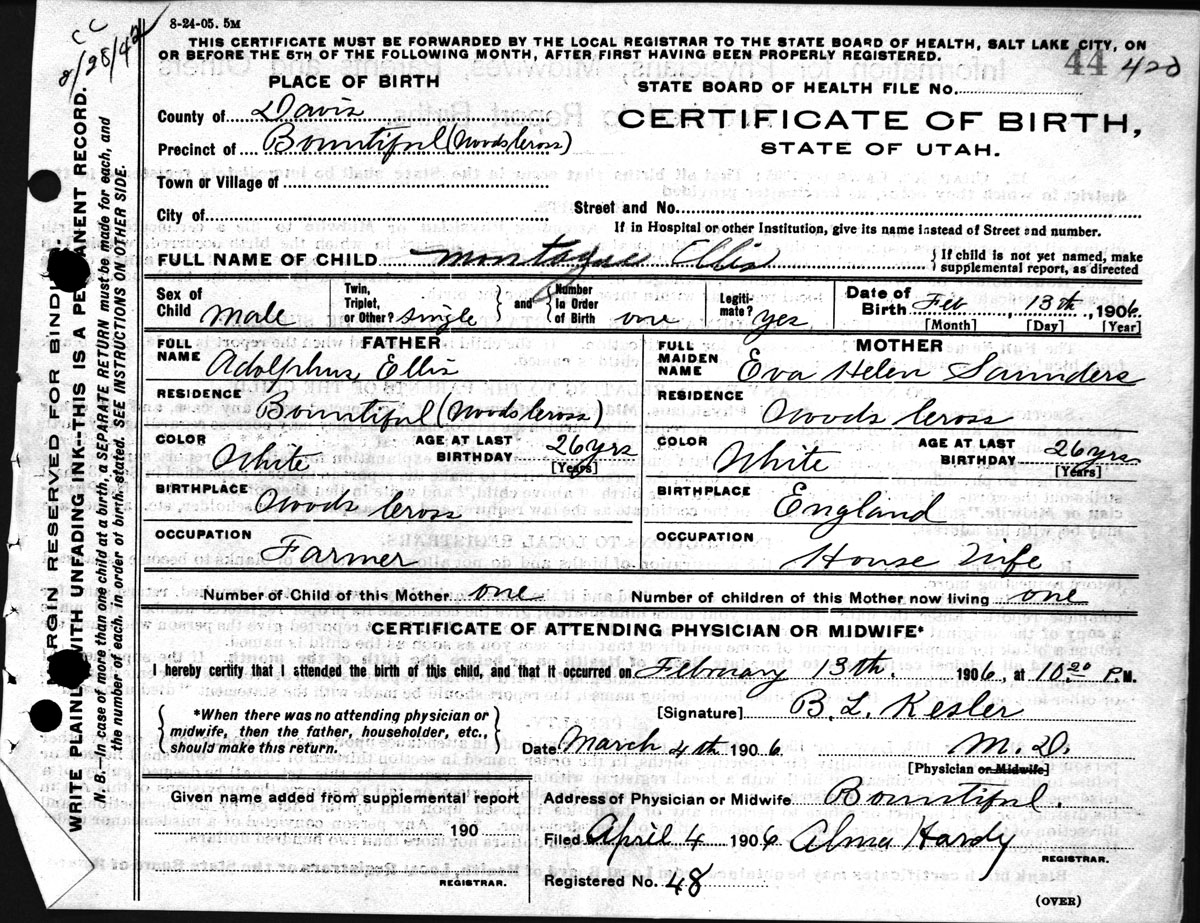 8-24-05. 5M
CC
8/28/42
THIS CERTIFICATE MUST BE FORWARDED BY THE LOCAL REGISTRAR TO THE STATE BOARD OF HEALTH, SALT LAKE CITY, ON
OR BEFORE THE 5TH OF THE FOLLOWING MONTH, AFTER FIRST HAVING BEEN PROPERLY REGISTERED.
44 420
PLACE OF BIRTH
STATE BOARD OF HEALTH FILE No.
County of Davis
CERTIFICATE OF BIRTH,
Precinct of Bountiful (Woods Cross)
STATE OF UTAH.
Town or Village of
City of
Street and No.
If in Hospital or other Institution, give its name instead of Street and number.
FULL NAME OF CHILD Montague Ellis { If child is not yet named, make
supplemental report, as directed
Sex of Child Male
Twin, Triplet, or Other? Single } and { Number in Order of Birth one
Legitimate? yes
Date of Birth Feb, 13th, 1906.
[Month] [Day] [Year]
FATHER
FULL NAME Adolphus Ellis
RESIDENCE Bountiful (Woods Cross)
COLOR White
AGE AT LAST BIRTHDAY 26 yrs
[Years]
BIRTHPLACE Woods Cross
OCCUPATION Farmer
MOTHER
FULL MAIDEN NAME Eva Helen Saunders
RESIDENCE Woods Cross
COLOR White
AGE AT LAST BIRTHDAY 26 yrs
[Years]
BIRTHPLACE England
OCCUPATION House Wife
Number of Child of this Mother one
Number of children of this Mother now living one
CERTIFICATE OF ATTENDING PHYSICIAN OR MIDWIFE*
I hereby certify that I attended the birth of this child, and that it occurred on February 13th. 1906, at 10.20 P M.
{ *When there was no attending physician or
midwife, then the father, householder, etc.,
should make this return. }
[Signature] B. L. Kesler
Date March 4th 1906 M.D.
[Physician or Midwife]
Given name added from supplemental report
190
REGISTRAR.
Address of Physician or Midwife Bountiful.
Filed April 4 1906 Alma Hardy
REGISTRAR.
Registered No. 48
(OVER)
MARGIN RESERVED FOR BINDING.
WRITE PLAINLY WITH UNFADING INK--THIS IS A PERMANENT RECORD.
N. B.—In case of more than one child at a birth, a SEPARATE RETURN must be made for each, and
the number of each, in order of birth, stated. SEE INSTRUCTIONS ON OTHER SIDE.